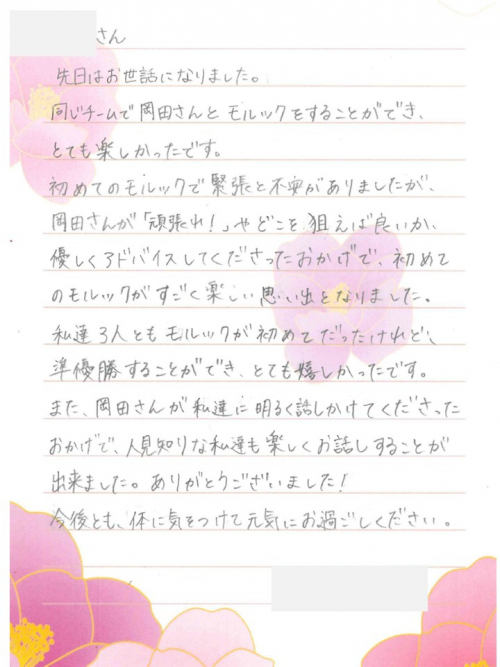 さん
先日はお世話になりました。
同じチームで岡田さんとモルックをすることができ、
とても楽しかったです。
初めてのモルックで緊張と不安がありましたが、
岡田さんが「頑張れ!」やどこを狙えば良いか、
優しくアドバイスしてくださったおかげで、初めて
のモルックがすごく楽しい思い出となりました。
私達3人ともモルックが初めてだったけれど、
準優勝することができ、とても嬉しかったです。
また、岡田さんが私達に明るく話しかけてくださった
おかげで、人見知りな私達も楽しくお話しすることが
出来ました。ありがとうございました!
今後とも、体に気をつけて元気にお過ごしください。